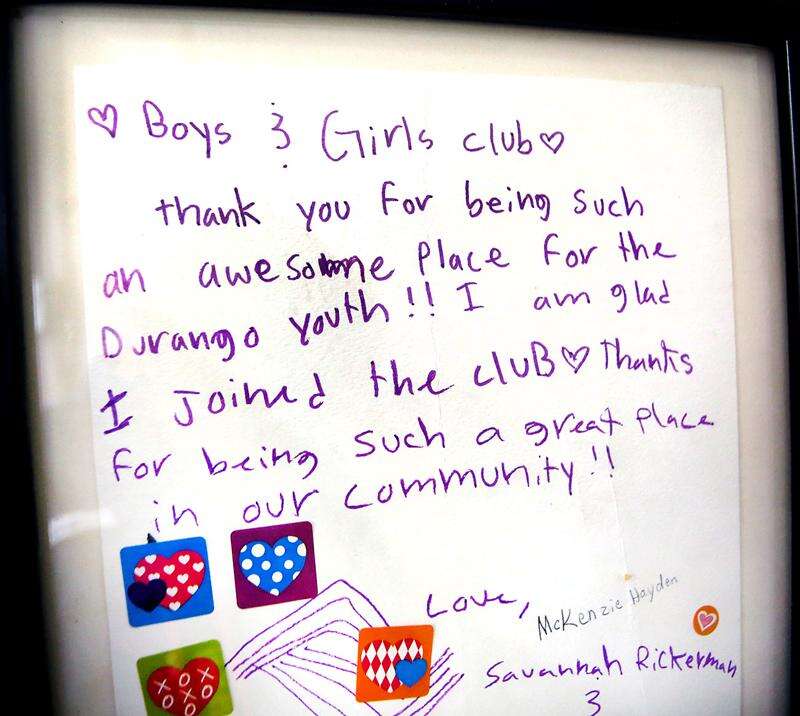 ♡ Boys & Girls club♡
thank you for being such
an awesome place for the
Durango youth!! I am glad
I joined the cluB♡ Thanks
for being such a great place
in our community!!
Love,
McKenzie Hayden
Savannah Rickerman
&
XO
XXO
O